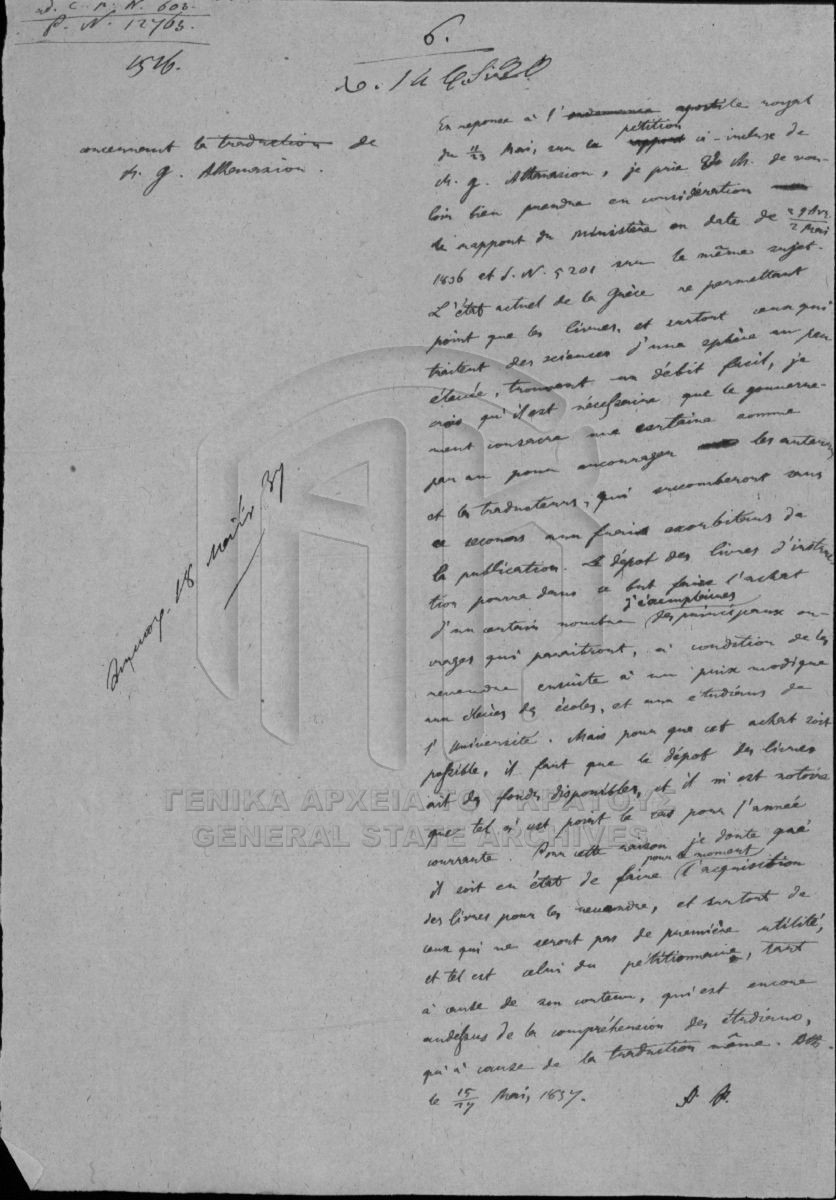 ad. C. P. N. 602.
P. N. 12763.
1516.
6.
concernant la traduction de
M. G. Athanasiou.
En reponce à l'ordonnance apostile royal
du 11/23 Mai, sur la rapport pétition ci-incluse de
M. G. Athanasiou, je prie V. M. de vou-
loir bien prendre en considération
le rapport du Ministère en date de 29 Avr./2 Mai
1836 et d. N. 5201 sur le même sujet.
L'état actuel de la Grèce ne permettant
point que les livres, et surtout ceux qui
traitent des sciences d'une sphère un peu
élevée, trouvent un débit facil, je
crois qu'il est nécessaire que le gouverne-
ment consacre une certaine somme
par an pour encourager les auteurs
et les traducteurs, qui succomberont sans
ce secours aux frais exorbitans de
la publication. Le dépot des livres d'instruc-
tion pourra dans ce but faire l'achat
d'un certain nombre d'exemplaires des principaux ou-
vrages qui paraitront, à condition de les
revendre ensuite à un prix modique
aux élèves des écoles, et aux étudians de
l'Université. Mais pour que cet achat soit
possible, il faut que le dépot des livres
ait des fonds disponibles, et il m'est notoire
que tel n'est point le cas pour l'année
courrante. Pour cette raison je doute que
il soit en état de faire pour le moment l'acquisition
des livres pour les revendre, et surtout de
ceux qui ne seront pas de première utilité,
et tel est celui du pétitionnaire, tant
à cause de son contenu, qui est encore
audessus de la compréhension des étudians,
qu'à cause de la traduction même. Ath.
le 15/27 Mai, 1837.
18 Μαΐου 37
ΓΕΝΙΚΑ ΑΡΧΕΙΑ ΤΟΥ ΚΡΑΤΟΥΣ
GENERAL STATE ARCHIVES